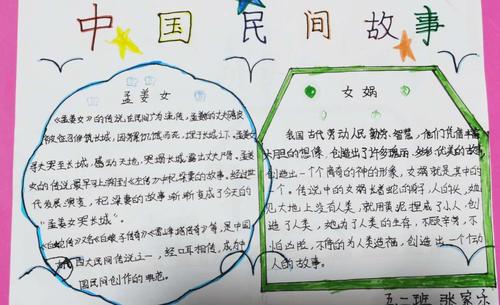 中国民间故事
孟姜女
《孟姜女》的传说，在民间广为流传，孟姜女的丈夫范杞梁
被迫召修筑长城，因劳累饥饿而死，埋于长城下。孟姜
寻夫哭至长城，感动天地，哭塌长城露出丈夫尸骨。孟姜
女的传说最早可上溯到《左传》中杞梁妻的故事，经过世
代发展、演变，杞梁妻的故事渐渐变成了今天的
“孟姜女哭长城”。
《白蛇传》（又名《白娘子传奇》《雷峰塔传奇》）等，是中国
四大民间传说之一，经口耳相传，成为中
国民间创作的典范。
女娲
我国古代劳动人民勤劳、智慧，他们凭借丰富
大胆的想像，创造出了许多瑰丽、多彩、优美的故事
创造出一个个离奇的神的形象，女娲就是其中的
一个。传说中的女娲长着蛇的身，人的头，她
见大地上没有人类，就用黄泥捏成了小人，创
造了人类，她为了人类的生存，不顾辛劳，不
怕凶险，不停的为人类造福，创造出一个个动
人的故事。
五二班 张家